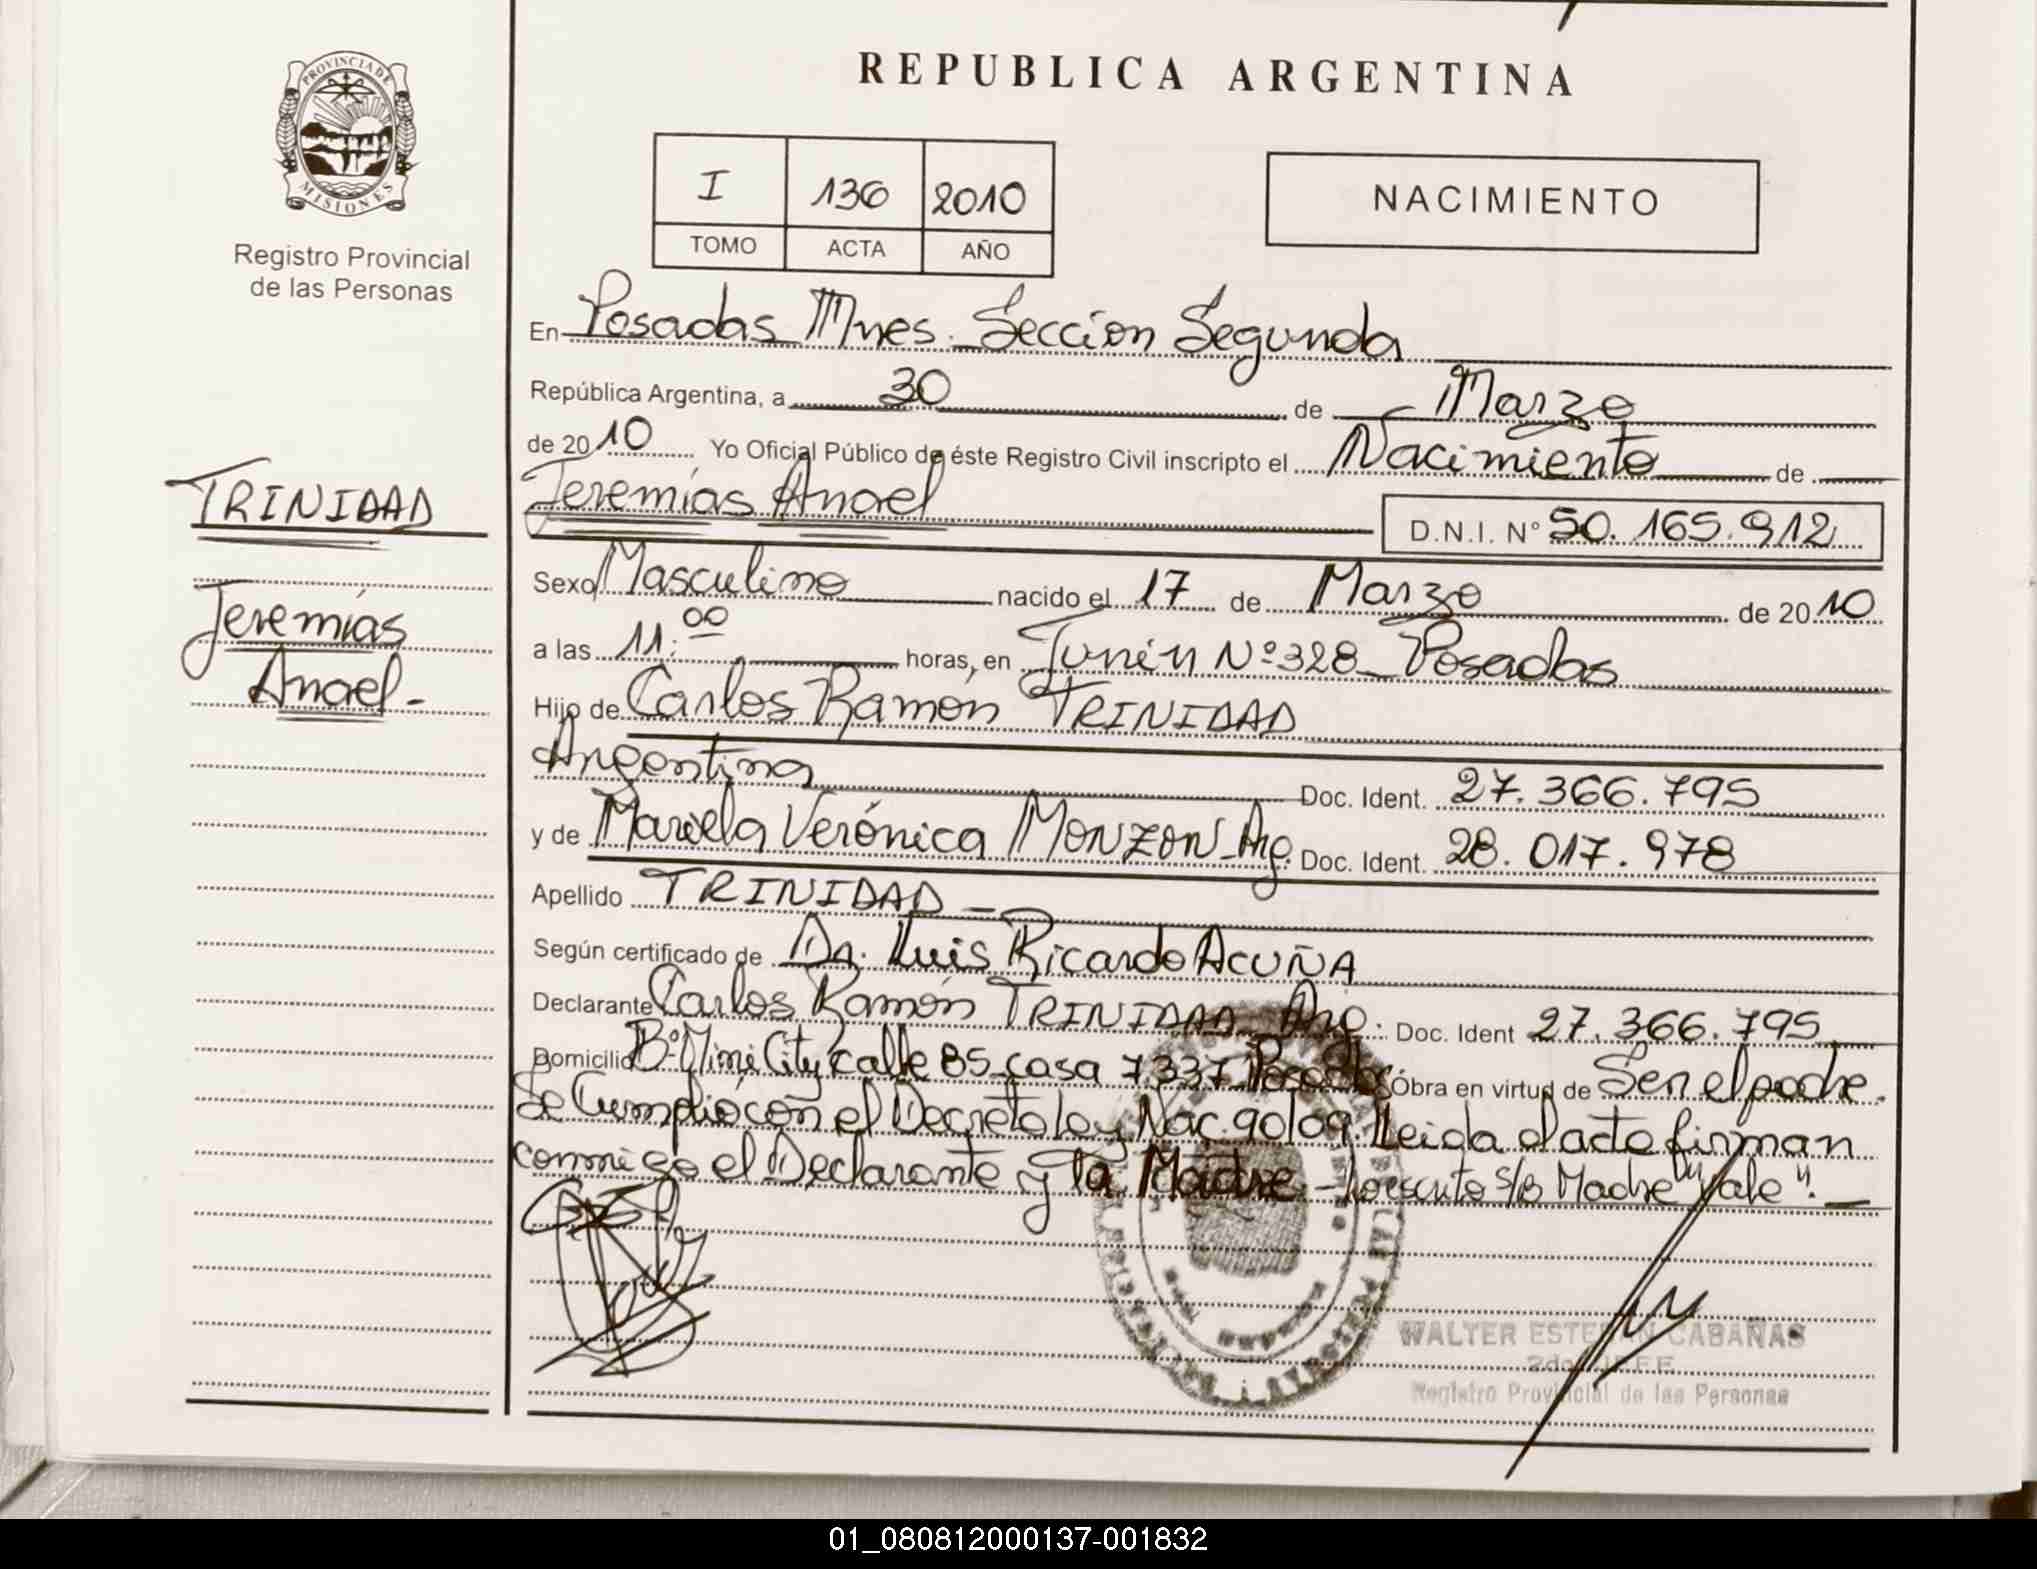 REPUBLICA ARGENTINA
PROVINCIA DE
MISIONES
Registro Provincial
de las Personas
I 136 2010
TOMO ACTA AÑO
NACIMIENTO
En Posadas Mnes. Seccion Segunda
República Argentina, a 30 de Marzo
de 2010 Yo Oficial Público de éste Registro Civil inscripto el Nacimiento de
Jeremías Anael D.N.I. N° 50.165.912
TRINIDAD
Jeremías
Anael-
Sexo Masculino nacido el 17 de Marzo de 2010
a las 11:00 horas, en Junín Nº 328_ Posadas
Hijo de Carlos Ramón TRINIDAD
Argentina Doc. Ident. 27.366.795
y de Mariela Verónica MONZON_Arg. Doc. Ident. 28.017.978
Apellido TRINIDAD -
Según certificado de Dr. Luis Ricardo ACUÑA
Declarante Carlos Ramón TRINIDAD Arg. Doc. Ident 27.366.795
Domicilio Bº Mini City calle 85 casa 7337 Posadas Obra en virtud de Ser el padre.
Se Cumplió con el Decreto ley Nac. 90/09. Leida el acta firman
conmigo el Declarante y la Madre - Lo escrito s/B Madre "Vale". -
WALTER ESTEBAN CABAÑAS
2do JEFE
Registro Provincial de las Personas
01_080812000137-001832